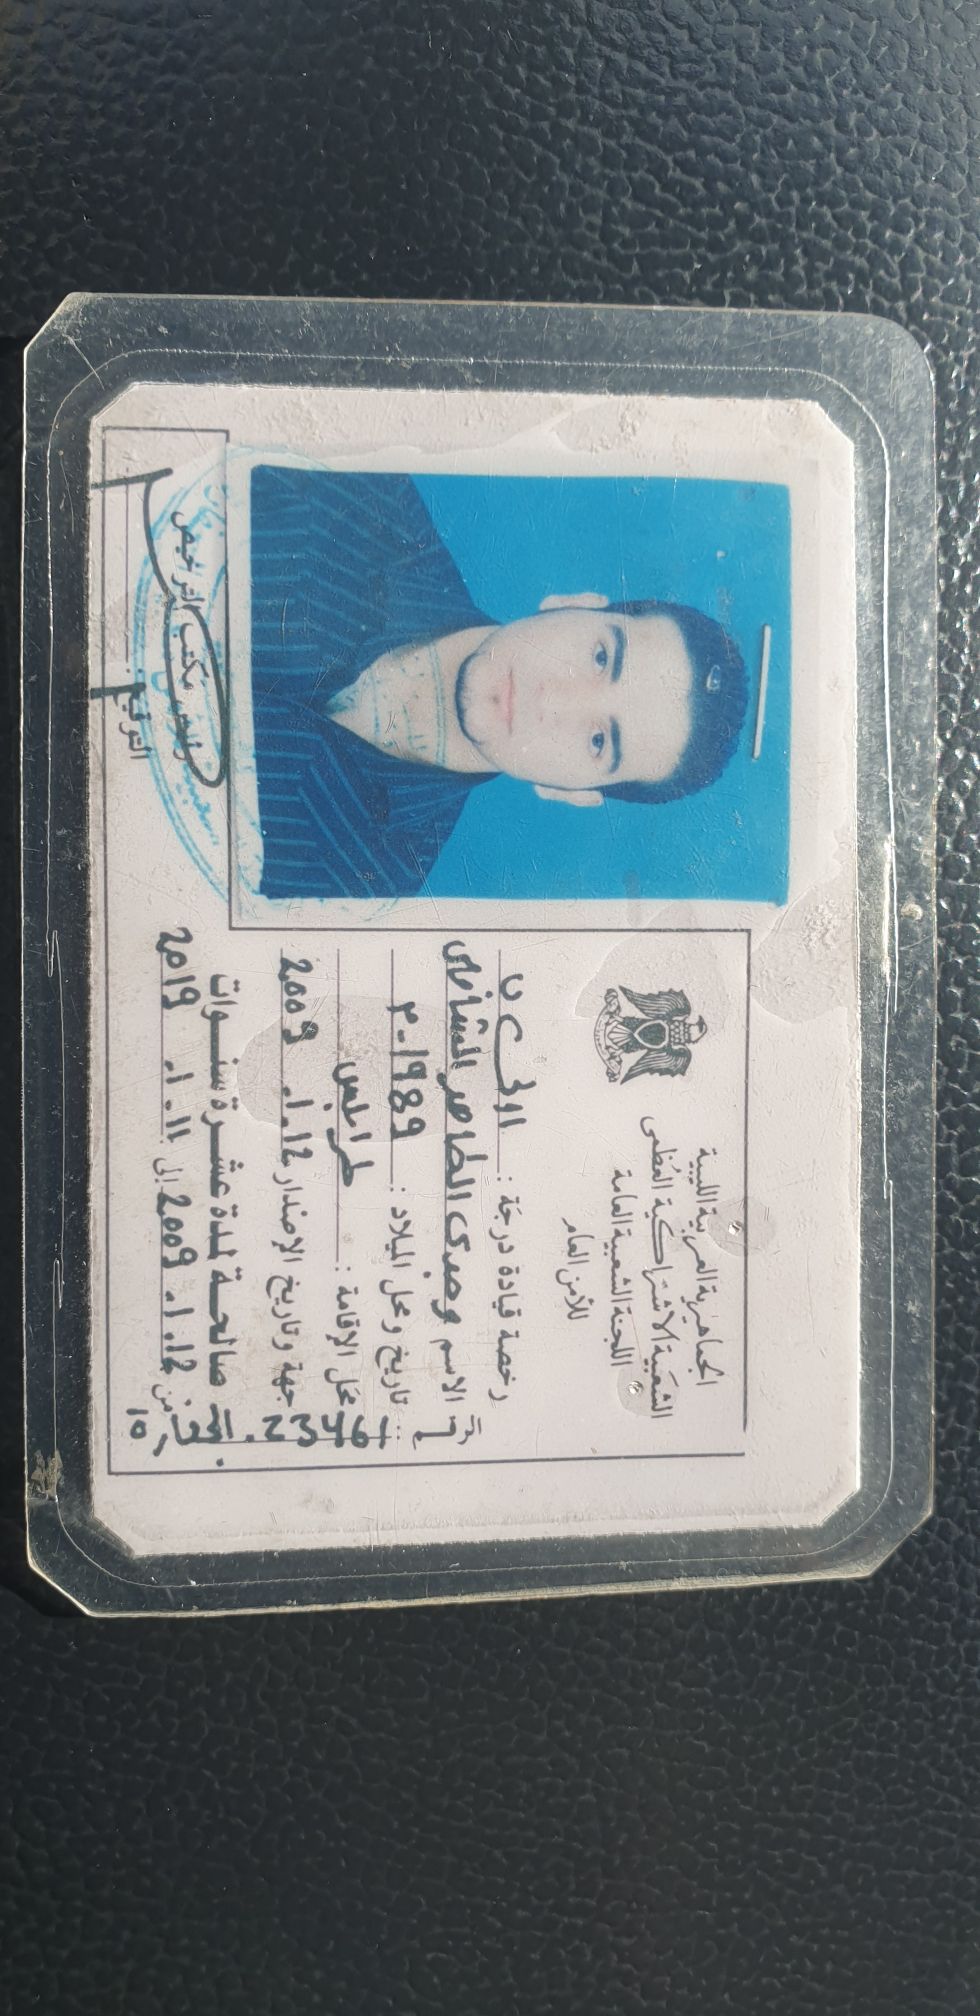 الجماهيرية العربية الليبية
الشعبية الاشتراكية العظمى
اللجنة الشعبية العامة
للأمن العام
رخصة قيادة درجة : اولى
الاسم وجدى الطاهر
تاريخ ومحل الميلاد : 1989-
محل الإقامة : طرابلس
جهة وتاريخ الإصدار 12. 1. 2009
صالحة لمدة عشرة سنوات
من 12. 1. 2009 إلى 11. 1. 2019
مكتب الترخيص
التوقيع :